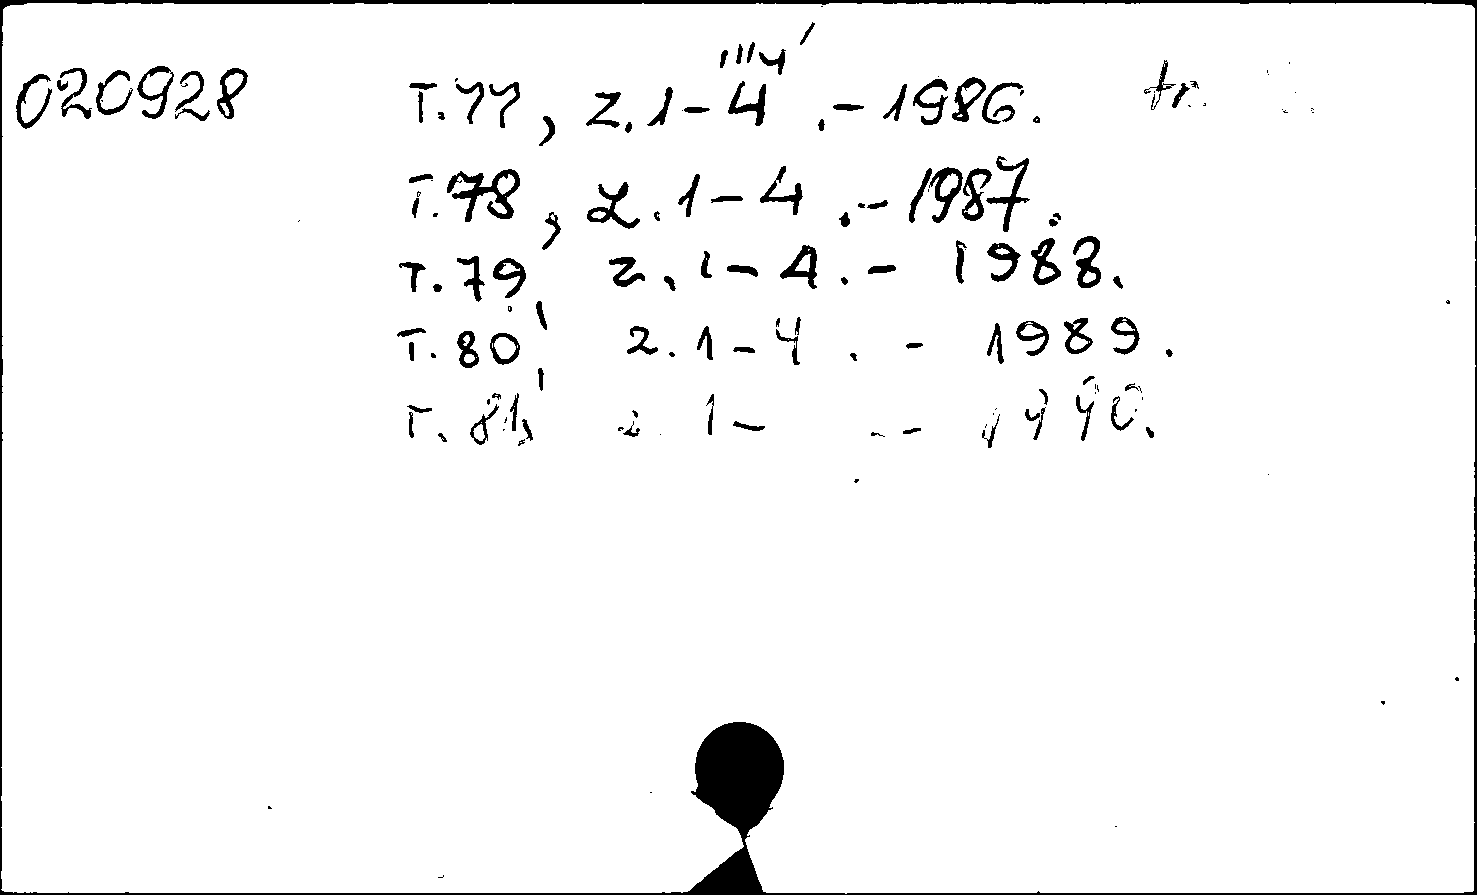 020928 T.77, z.1-4.-1986. tr.
T.78, z.1-4.-1987.
T.79, z.1-4.- 1988.
T.80, z.1-4.- 1989.
T.81, z.1- .- 1990.